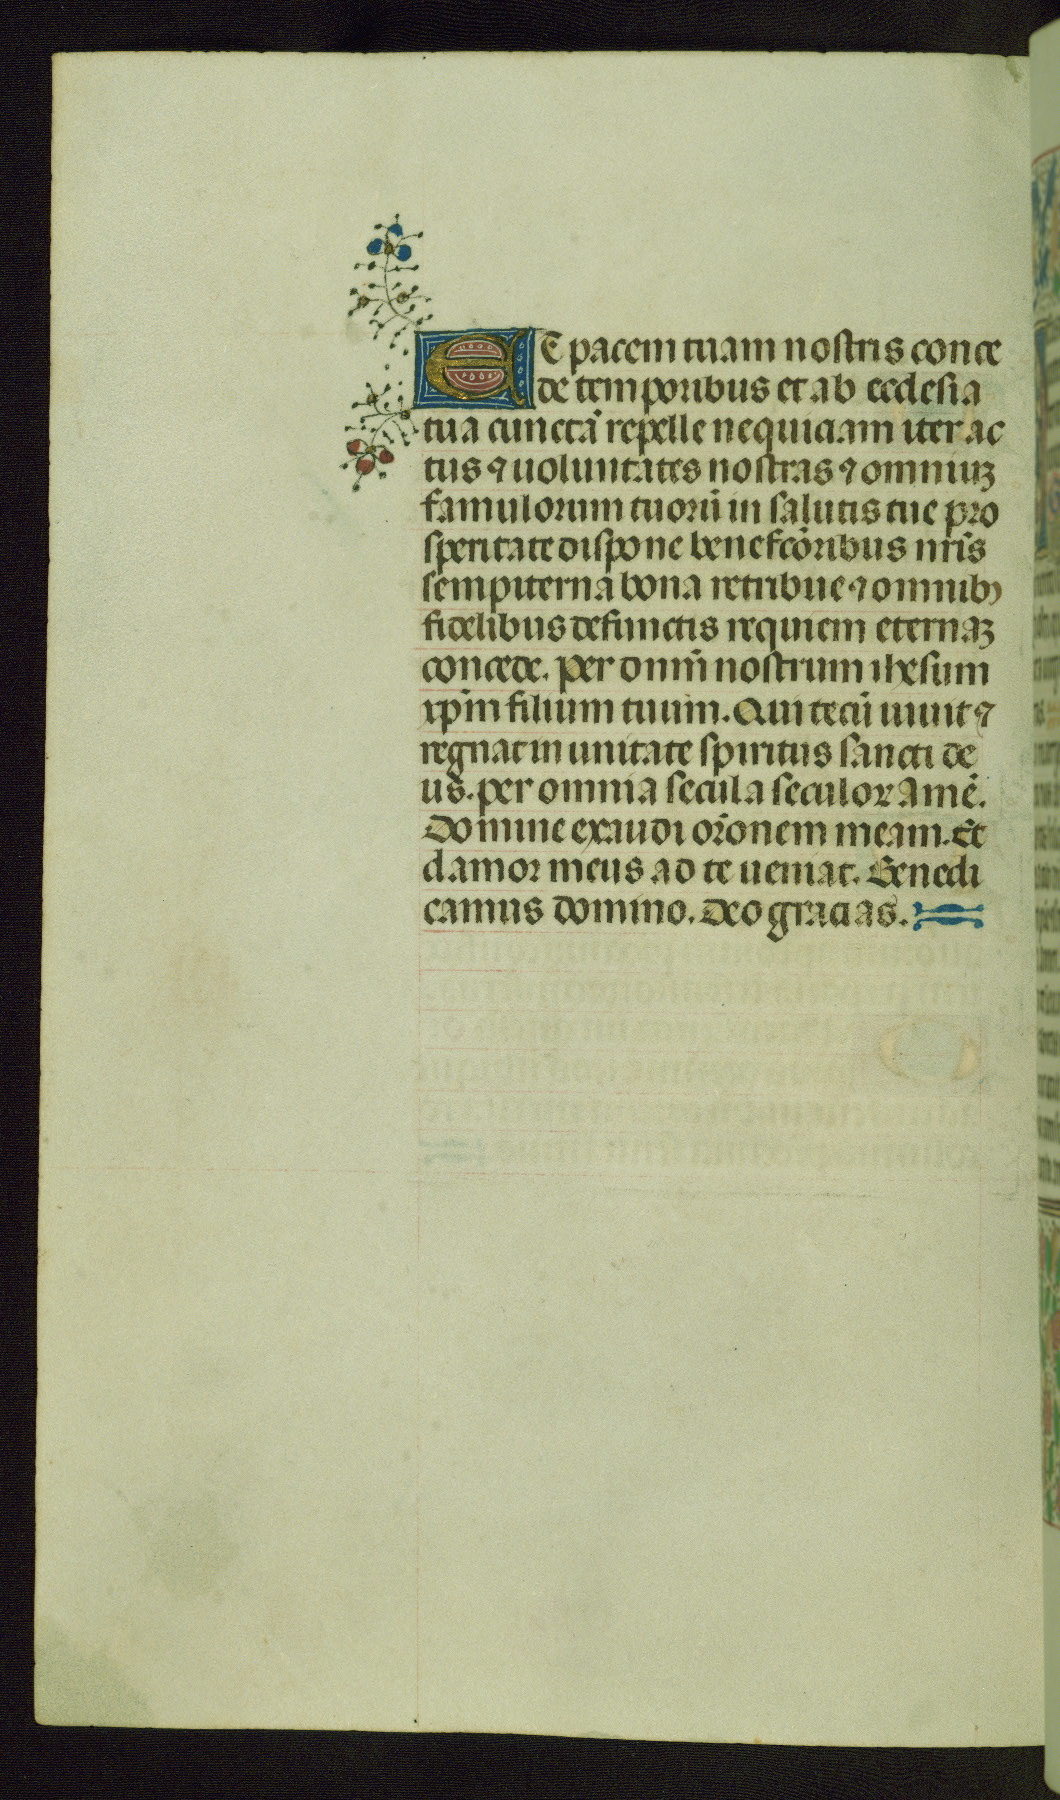 Et pacem tuam nostris conce
de temporibus et ab ecclesia
tua cunctā repelle nequiciam iter ac
tus ⁊ uoluntates nostras ⁊ omniuꝫ
famulorum tuorū in salutis tue pro
speritate dispone benefcōribus nr̄is
sempiterna bona retribue ⁊ omnibꝫ
fidelibus defunctis requiem eternaꝫ
concede. per dnm̄ nostrum ihesum
xpm̄ filium tuum. Qui tecū uiuit ⁊
regnat in unitate spiritus sancti de
us. per omnia secula seculoꝝ amē.
Domine exaudi orōnem meam. Et
clamor meus ad te ueniat. Benedi
camus domino. Deo gracias.